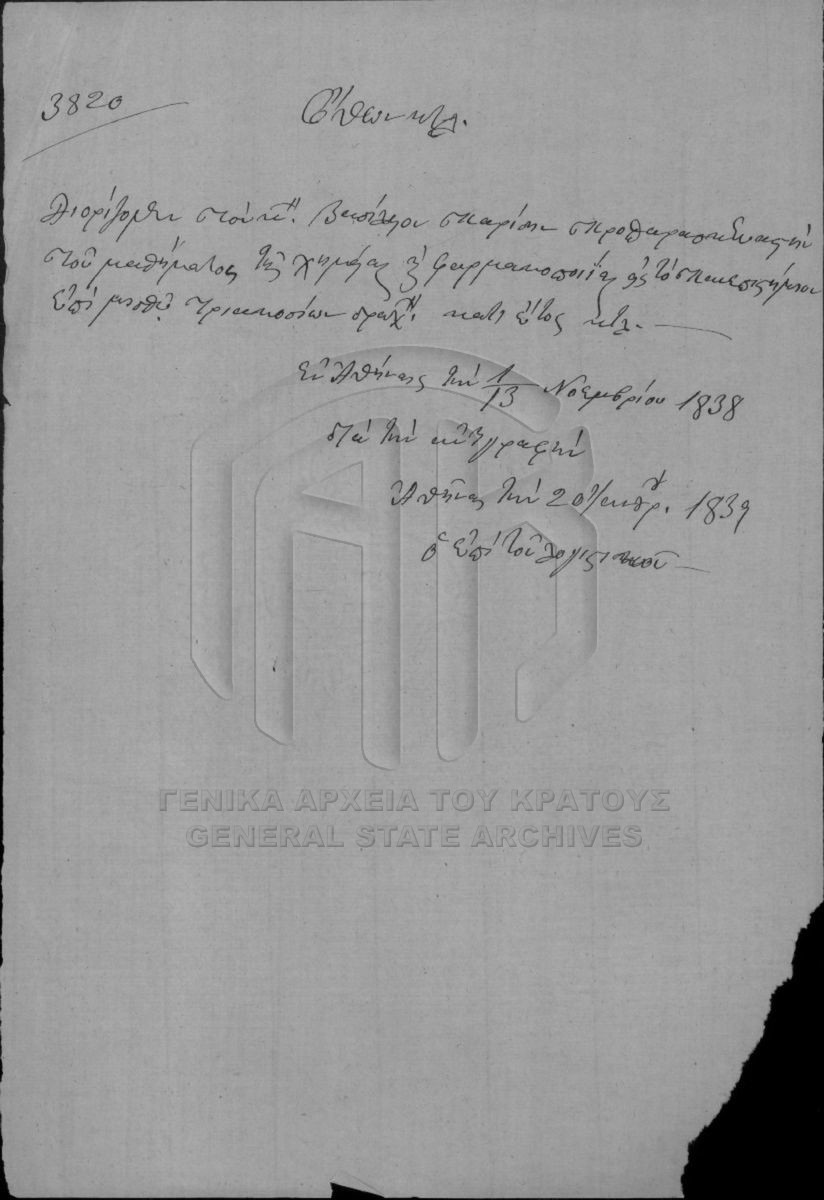 3820
Ὄθων κτλ.
Διορίζομεν τὸν κον. Βασίλειον προπαρασκευαστὴν
τοῦ μαθήματος τῆς χημείας καὶ φαρμακοποιΐας εἰς τὸ πανεπιστήμιον
ἐπὶ μισθῷ τριακοσίων δραχ. κατ' ἔτος κτλ.
Ἐν Ἀθήναις τὴν 1/13 Νοεμβρίου 1838
διὰ τὴν ἀντιγραφὴν
Ἀθῆναι τὴν 2 1839
ὁ ἐπὶ τοῦ λογιστικοῦ
ΓΕΝΙΚΑ ΑΡΧΕΙΑ ΤΟΥ ΚΡΑΤΟΥΣ
GENERAL STATE ARCHIVES